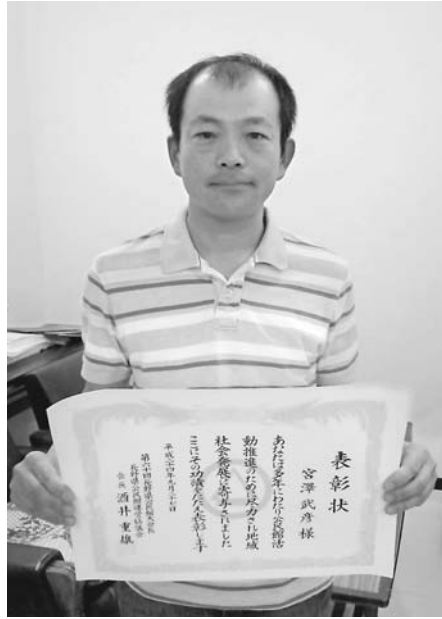 表彰状
宮澤武彦様
あなたは多年にわたり公民館活
動推進のために尽力され地域
社会発展に寄与されました
ここにその功績をたたえ表彰します
平成二十四年九月三十日
第六十回長野県公民館大会長
長野県公民館運営協議会
会長 酒井重雄